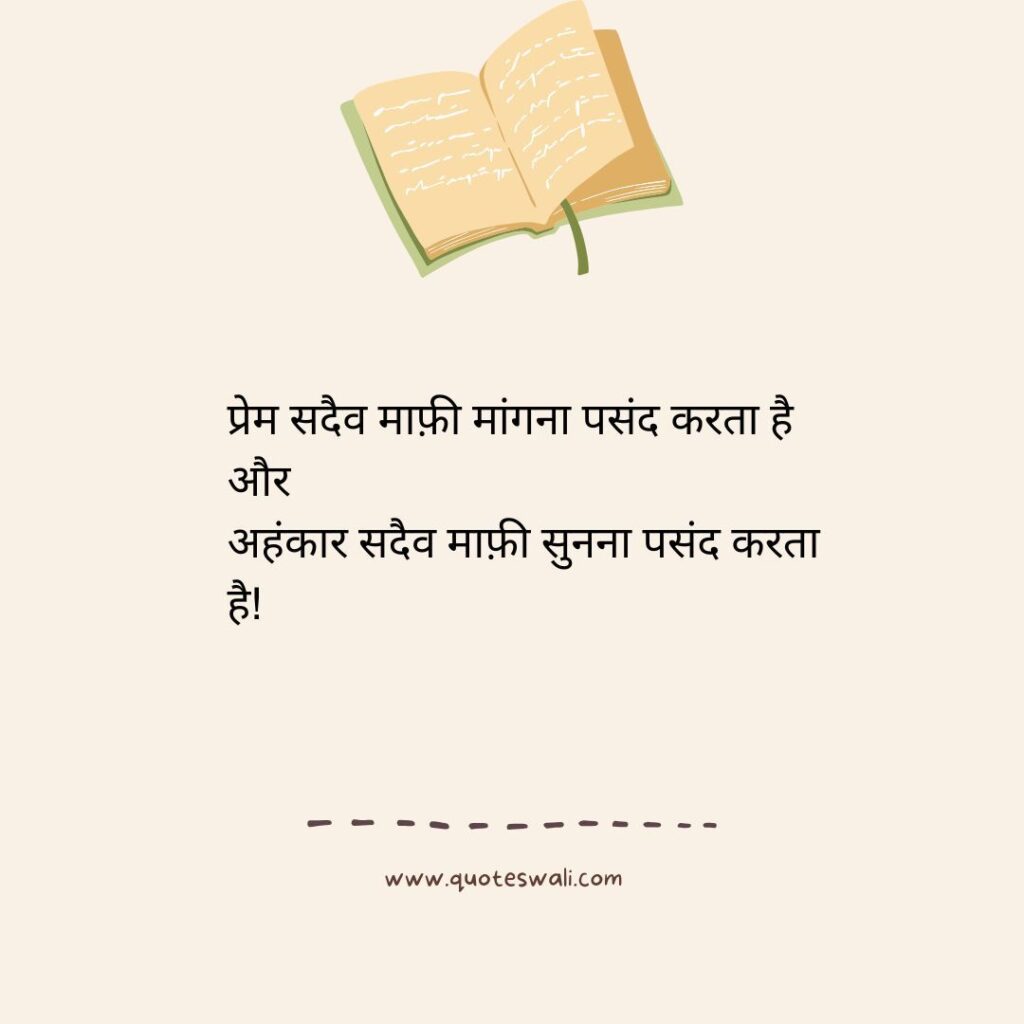 प्रेम सदैव माफ़ी मांगना पसंद करता है
और
अहंकार सदैव माफ़ी सुनना पसंद करता
है!
www.quoteswali.com